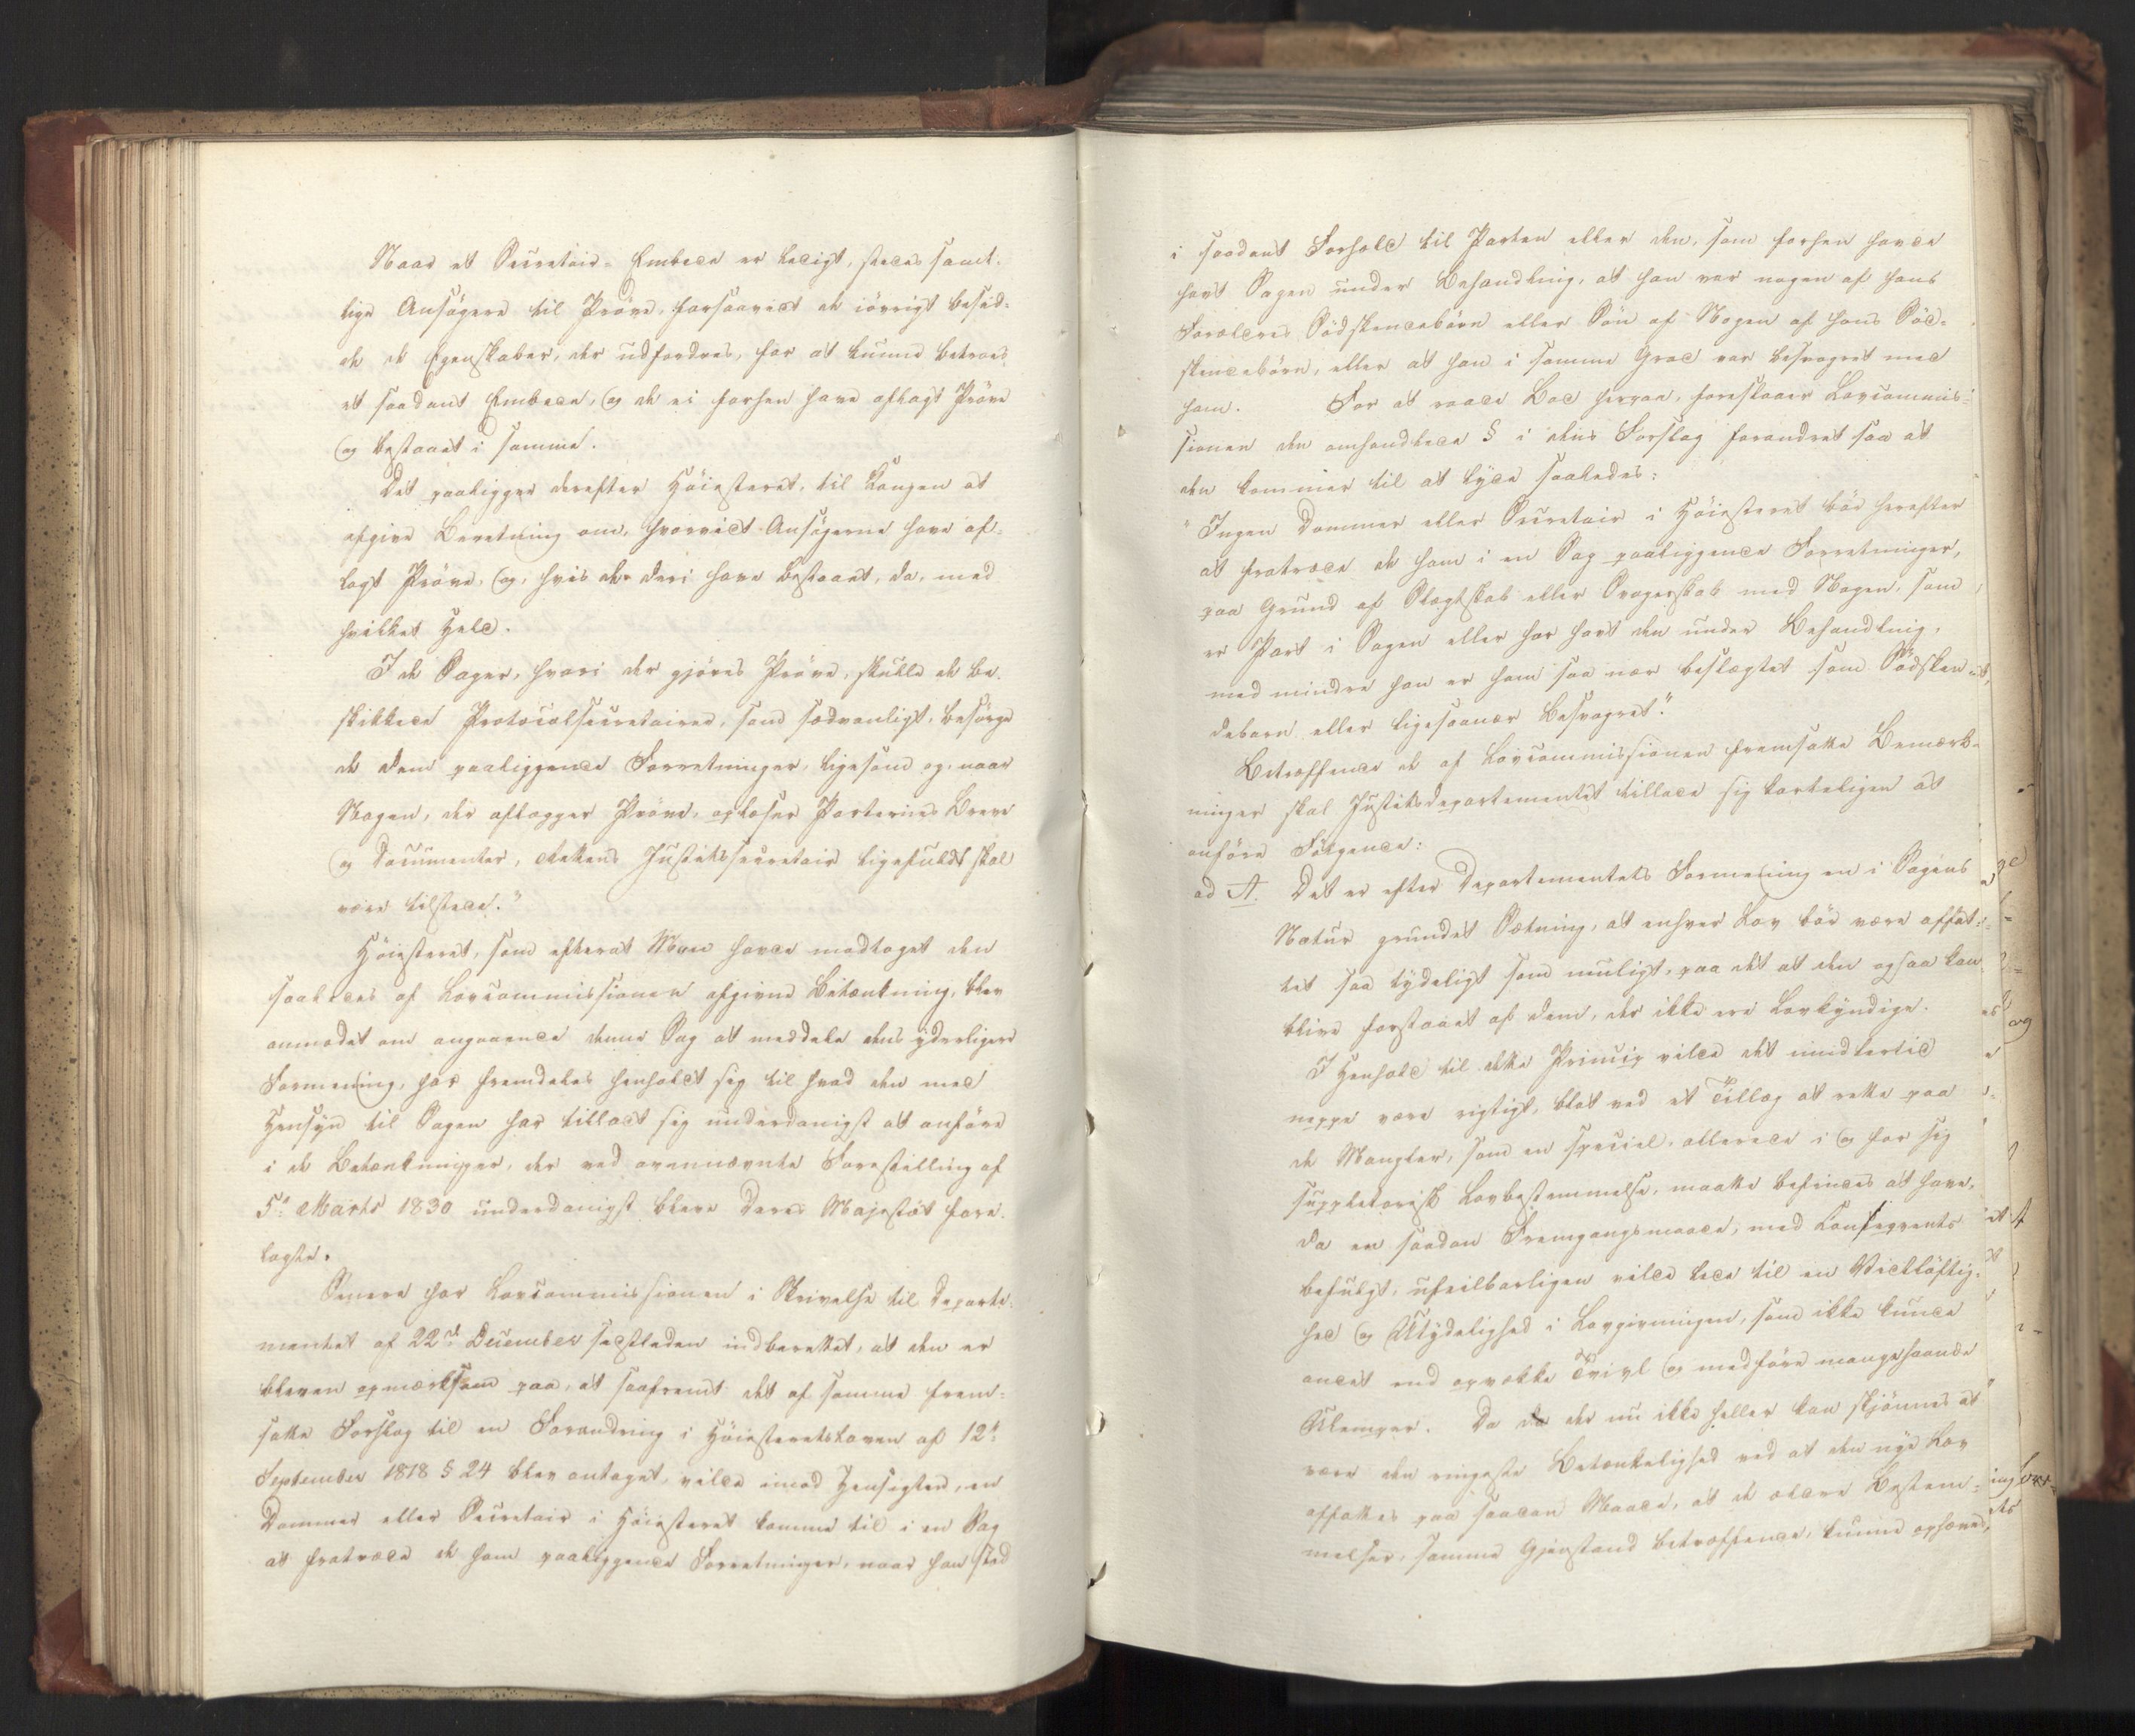 Naar et Secretair-Embede er ledigt, stedes samt-
lige Ansøgere til Prøve, forsaavidt de iøvrigt besid-
de de Egenskaber, der udfordres, for at kunne betroes
et saadant Embede, og de ei forhen have aflagt Prøve
og bestaaet i samme.
Det paaligger derefter Høiesteret, til Kongen at
afgive Beretning om, hvorvidt Ansøgerne have af-
lagt Prøve, og, hvis de deri have bestaaet, da, med
hvilket Held.
I de Sager, hvori der gjøres Prøve, skulle de be-
skikkede Protocolsecretairer, som sædvanligt, besørge
de dem paaliggende Forretninger, ligesom og, naar
Nogen, der aflægger Prøve, oplæser Parternes Breve
og Documenter, Rettens Justitssecretair ligefuldt skal
være tilstede."
Høiesteret, som efterat Man havde modtaget den
saaledes af Lovcommissionen afgivne Betænkning, blev
anmodet om angaaende denne Sag at meddele dens yderligere
Formening, har fremdeles henholdt sig til hvad den med
Hensyn til Sagen har tilladt sig underdanigst at anføre
i de Betænkninger, der ved ovennævnte Forestilling af
5te Marts 1830 underdanigst bleve Deres Majestæt fore-
lagte.
Senere har Lovcommissionen i Skrivelse til Departe-
mentet af 22de December sidstleden indberettet, at den er
bleven opmærksom paa, at saafremt det af samme frem-
satte Forslag til en Forandring i Høiesteretsloven af 12te
September 1818 § 24 blev antaget, vilde imod Hensigten, en
Dommer eller Secretair i Høiesteret komme til i en Sag
at fratræde de ham paaliggende Forretninger, naar han stod
i saadant Forhold til Parten eller den, som forhen havde
havt Sagen under Behandling, at han var nogen af hans
Forældres Sødskendebørn eller Søn af Nogen af hans Sød-
skendebørn, eller at han i samme Grad var besvogret med
ham. For at raade Bod herpaa, foreslaaer Lovcommis-
sionen den omhandlede § i dens Forslag forandret saa at
den kommer til at lyde saaledes:
"Ingen Dommer eller Secretair i Høiesteret bør herefter
at fratræde de ham i en Sag paaliggende Forretninger,
paa Grund af Slægtskab eller Svogerskab med Nogen, som
er Part i Sagen eller har havt den under Behandling,
med mindre han er ham saa nær beslægtet som Sødsken-
debarn eller ligesaanær besvogret."
Betræffende de af Lovcommissionen fremsatte Bemærk-
ninger skal Justitsdepartementet tillade sig korteligen at
anføre Følgende:
ad A. Det er efter Departementets Formening en i Sagens
Natur grundet Sætning, at enhver Lov bør være affat-
tet saa tydeligt som muligt, paa det at den ogsaa kan
blive forstaaet af dem, der ikke ere Lovkyndige.
I Henhold til dette Princip vilde det imidlertid
neppe være rigtigt, blot ved et Tillæg at rette paa
de Mangler, som en speciel, allerede i og for sig
suppletorisk Lovbestemmelse, maatte befindes at have,
da en saadan Fremgangsmaade, med Konseqvents
befulgt, ufeilbarligen vilde lede til en Vidtløftig-
hed og Utydelighed i Lovgivningen, som ikke kunde
andet end opvække Tvivl og medføre mangehaande
Ulemper. Da der nu ikke heller kan skjønnes at
være den ringeste Betænkelighed ved at den nye Lov
affattes paa saadan Maade, at de ældre Bestem-
melser, samme Gjenstand betræffende, kunne ophæves,